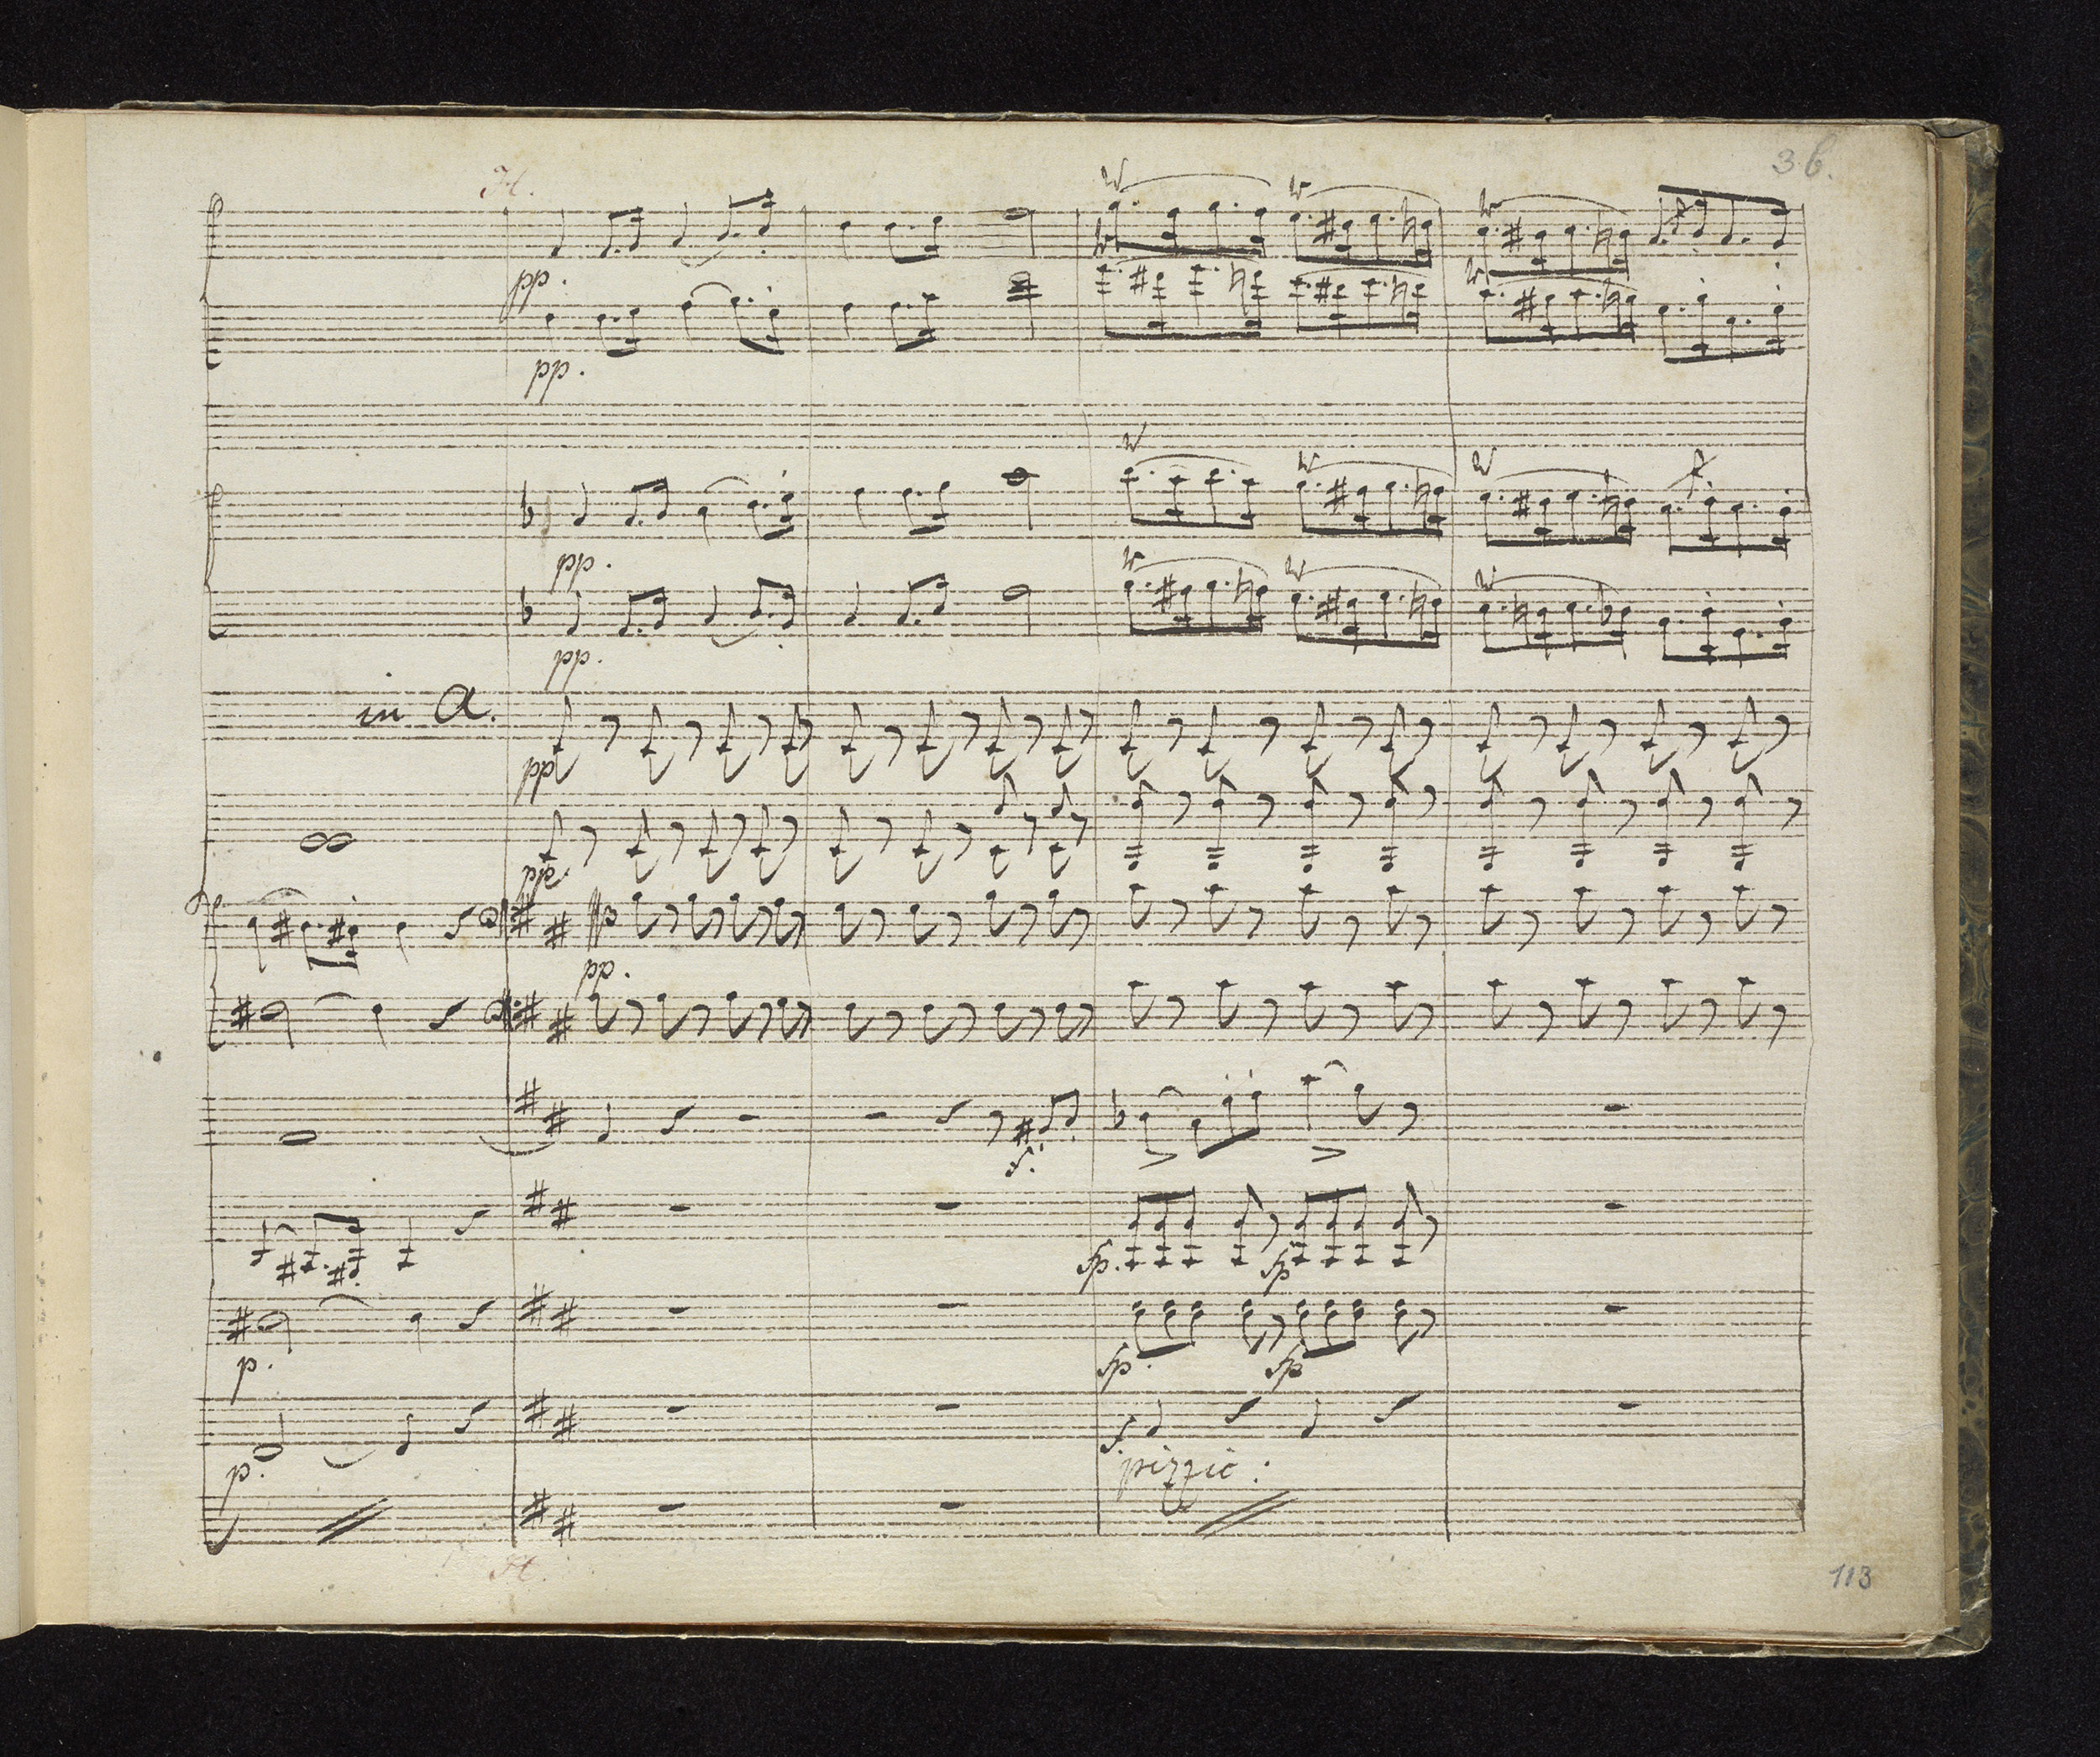 36.
H.
pp.
pp.
pp.
pp.
in A.
pp
pp.
pp.
f.
sp.
sp
p.
sp.
sp
p.
f
pizzic:
H.
113